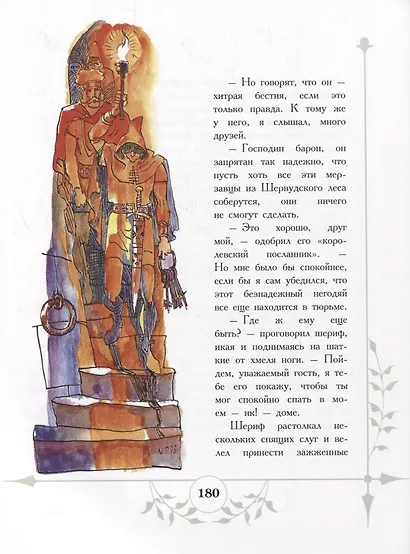 — Но говорят, что он —
хитрая бестия, если это
только правда. К тому же
у него, я слышал, много
друзей.
— Господин барон, он
запрятан так надежно, что
пусть хоть все эти мер-
завцы из Шервудского леса
соберутся, они ничего
не смогут сделать.
— Это хорошо, друг
мой, — одобрил его «коро-
левский посланник». —
Но мне было бы спокойнее,
если бы я сам убедился, что
этот безнадежный негодяй
все еще находится в тюрьме.
— Где ж ему еще
быть? — проговорил шериф,
икая и поднимаясь на шат-
кие от хмеля ноги. — Пой-
дем, уважаемый гость, я те-
бе его покажу, чтобы ты
мог спокойно спать в мо-
ем — ик! — доме.
Шериф растолкал не-
скольких спящих слуг и ве-
лел принести зажженные
180